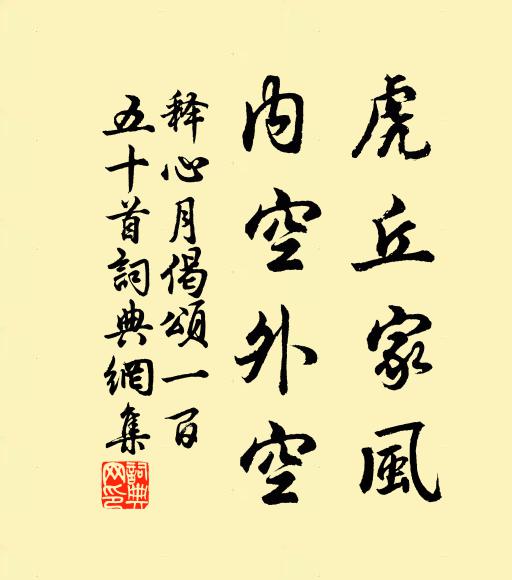 虎丘家風
内空外空
释心月偈頌一百
五十首詞典網集
詞典网印